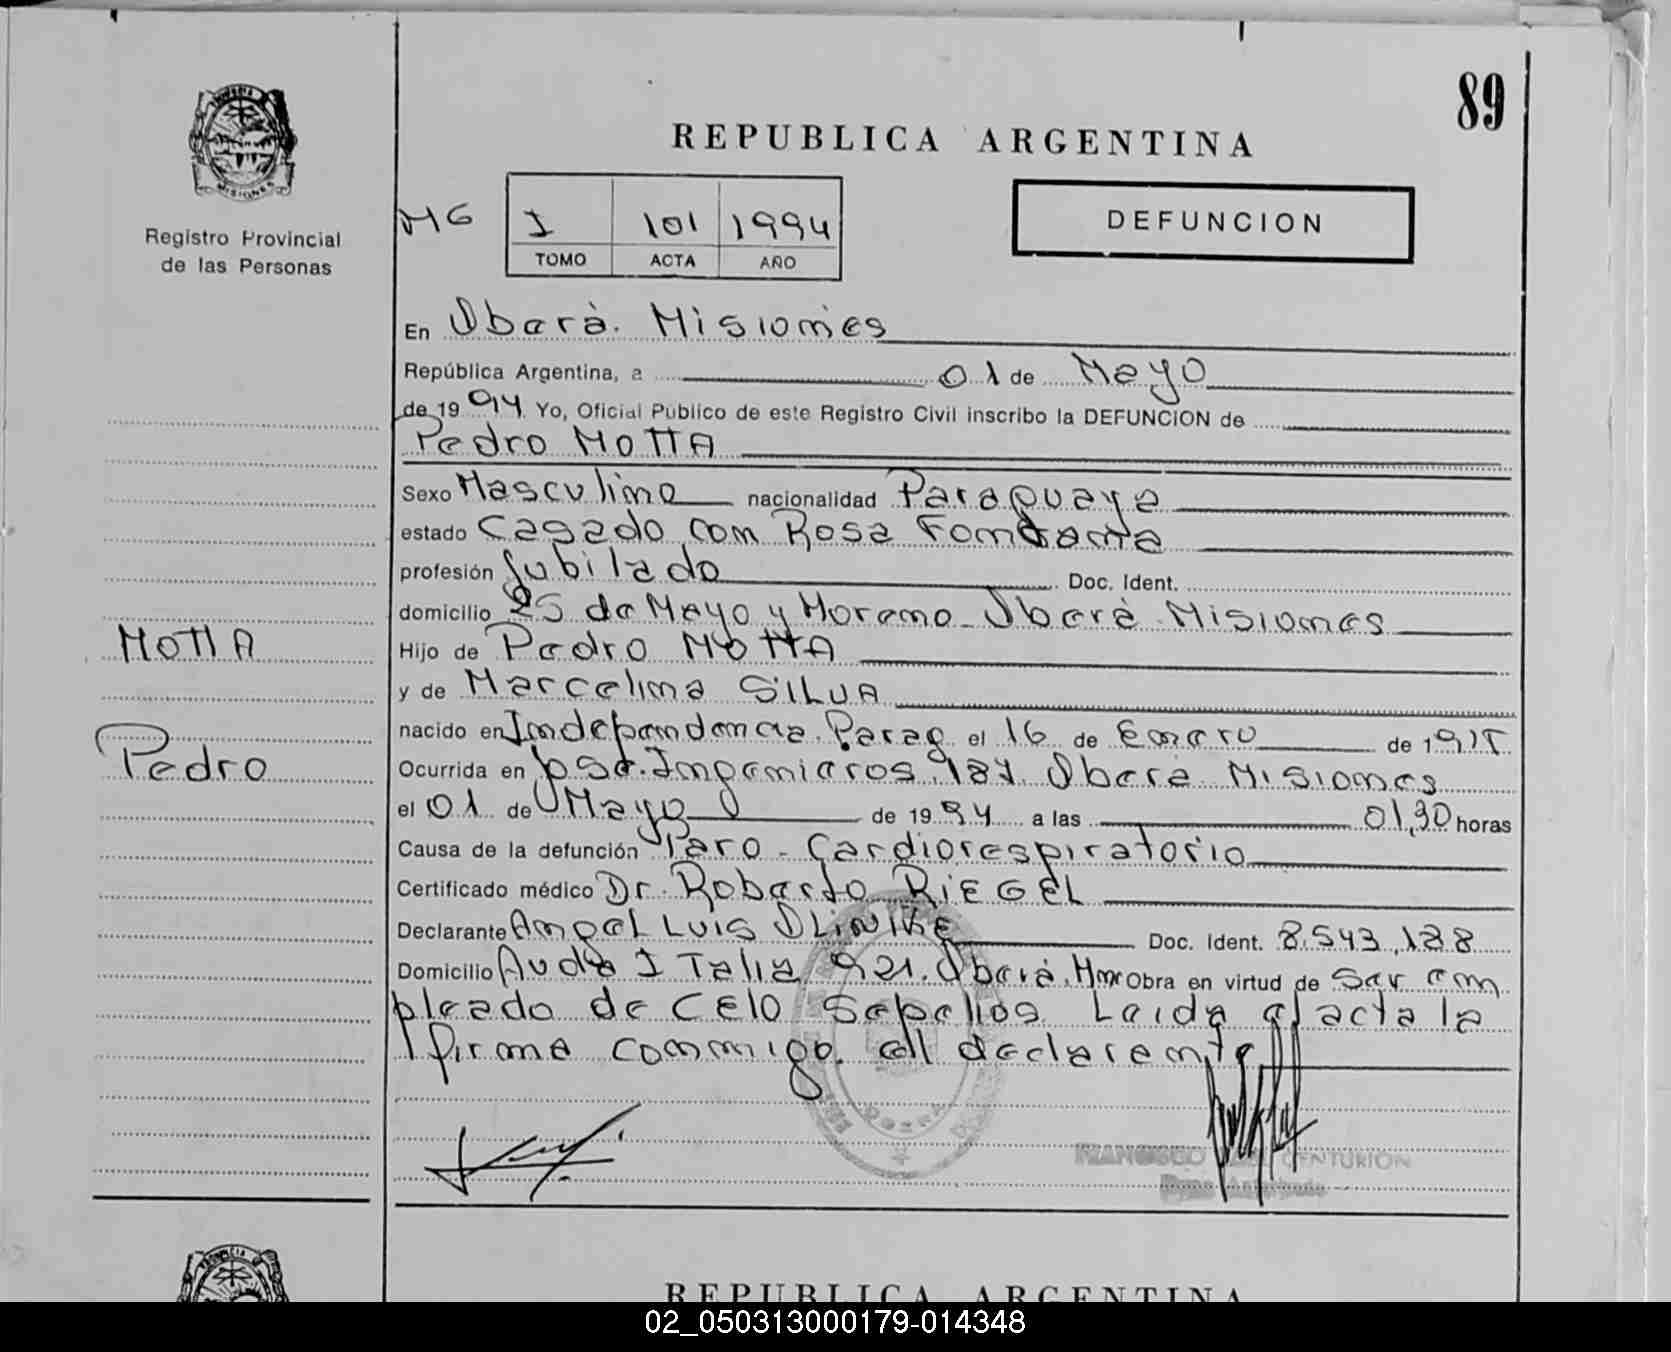 89
PROVINCIA
MISIONES
REPUBLICA ARGENTINA
Registro Provincial
de las Personas
MG
I 101 1994
TOMO ACTA AÑO
DEFUNCION
En Oberá. Misiones
República Argentina, a 01 de Mayo
de 1994 Yo, Oficial Público de este Registro Civil inscribo la DEFUNCION de
Pedro MOTTA
Sexo Masculino nacionalidad Paraguaya
estado Casado con Rosa
profesión Jubilado Doc. Ident.
domicilio 25 de Mayo y Moreno - Oberá - Misiones
MOTTA
Hijo de Pedro MOTTA
y de Marcelina SILVA
Pedro
nacido en Independencia. Parag. el 16 de Enero de 191
Ocurrida en Ingenieros Oberá Misiones
el 01 de Mayo de 1994 a las 01,30 horas
Causa de la defunción Paro - Cardiorespiratorio
Certificado médico Dr. Roberto RIEGEL
Declarante Angel LUIS Doc. Ident. 8.543.188
Domicilio Avda ITalia 921. Oberá. Mnes Obra en virtud de Ser em
pleado de CELO Sepelios Leida el acta la
firma conmigo el declarante
FRANCISCO CENTURION
REPUBLICA ARGENTINA
02_050313000179-014348